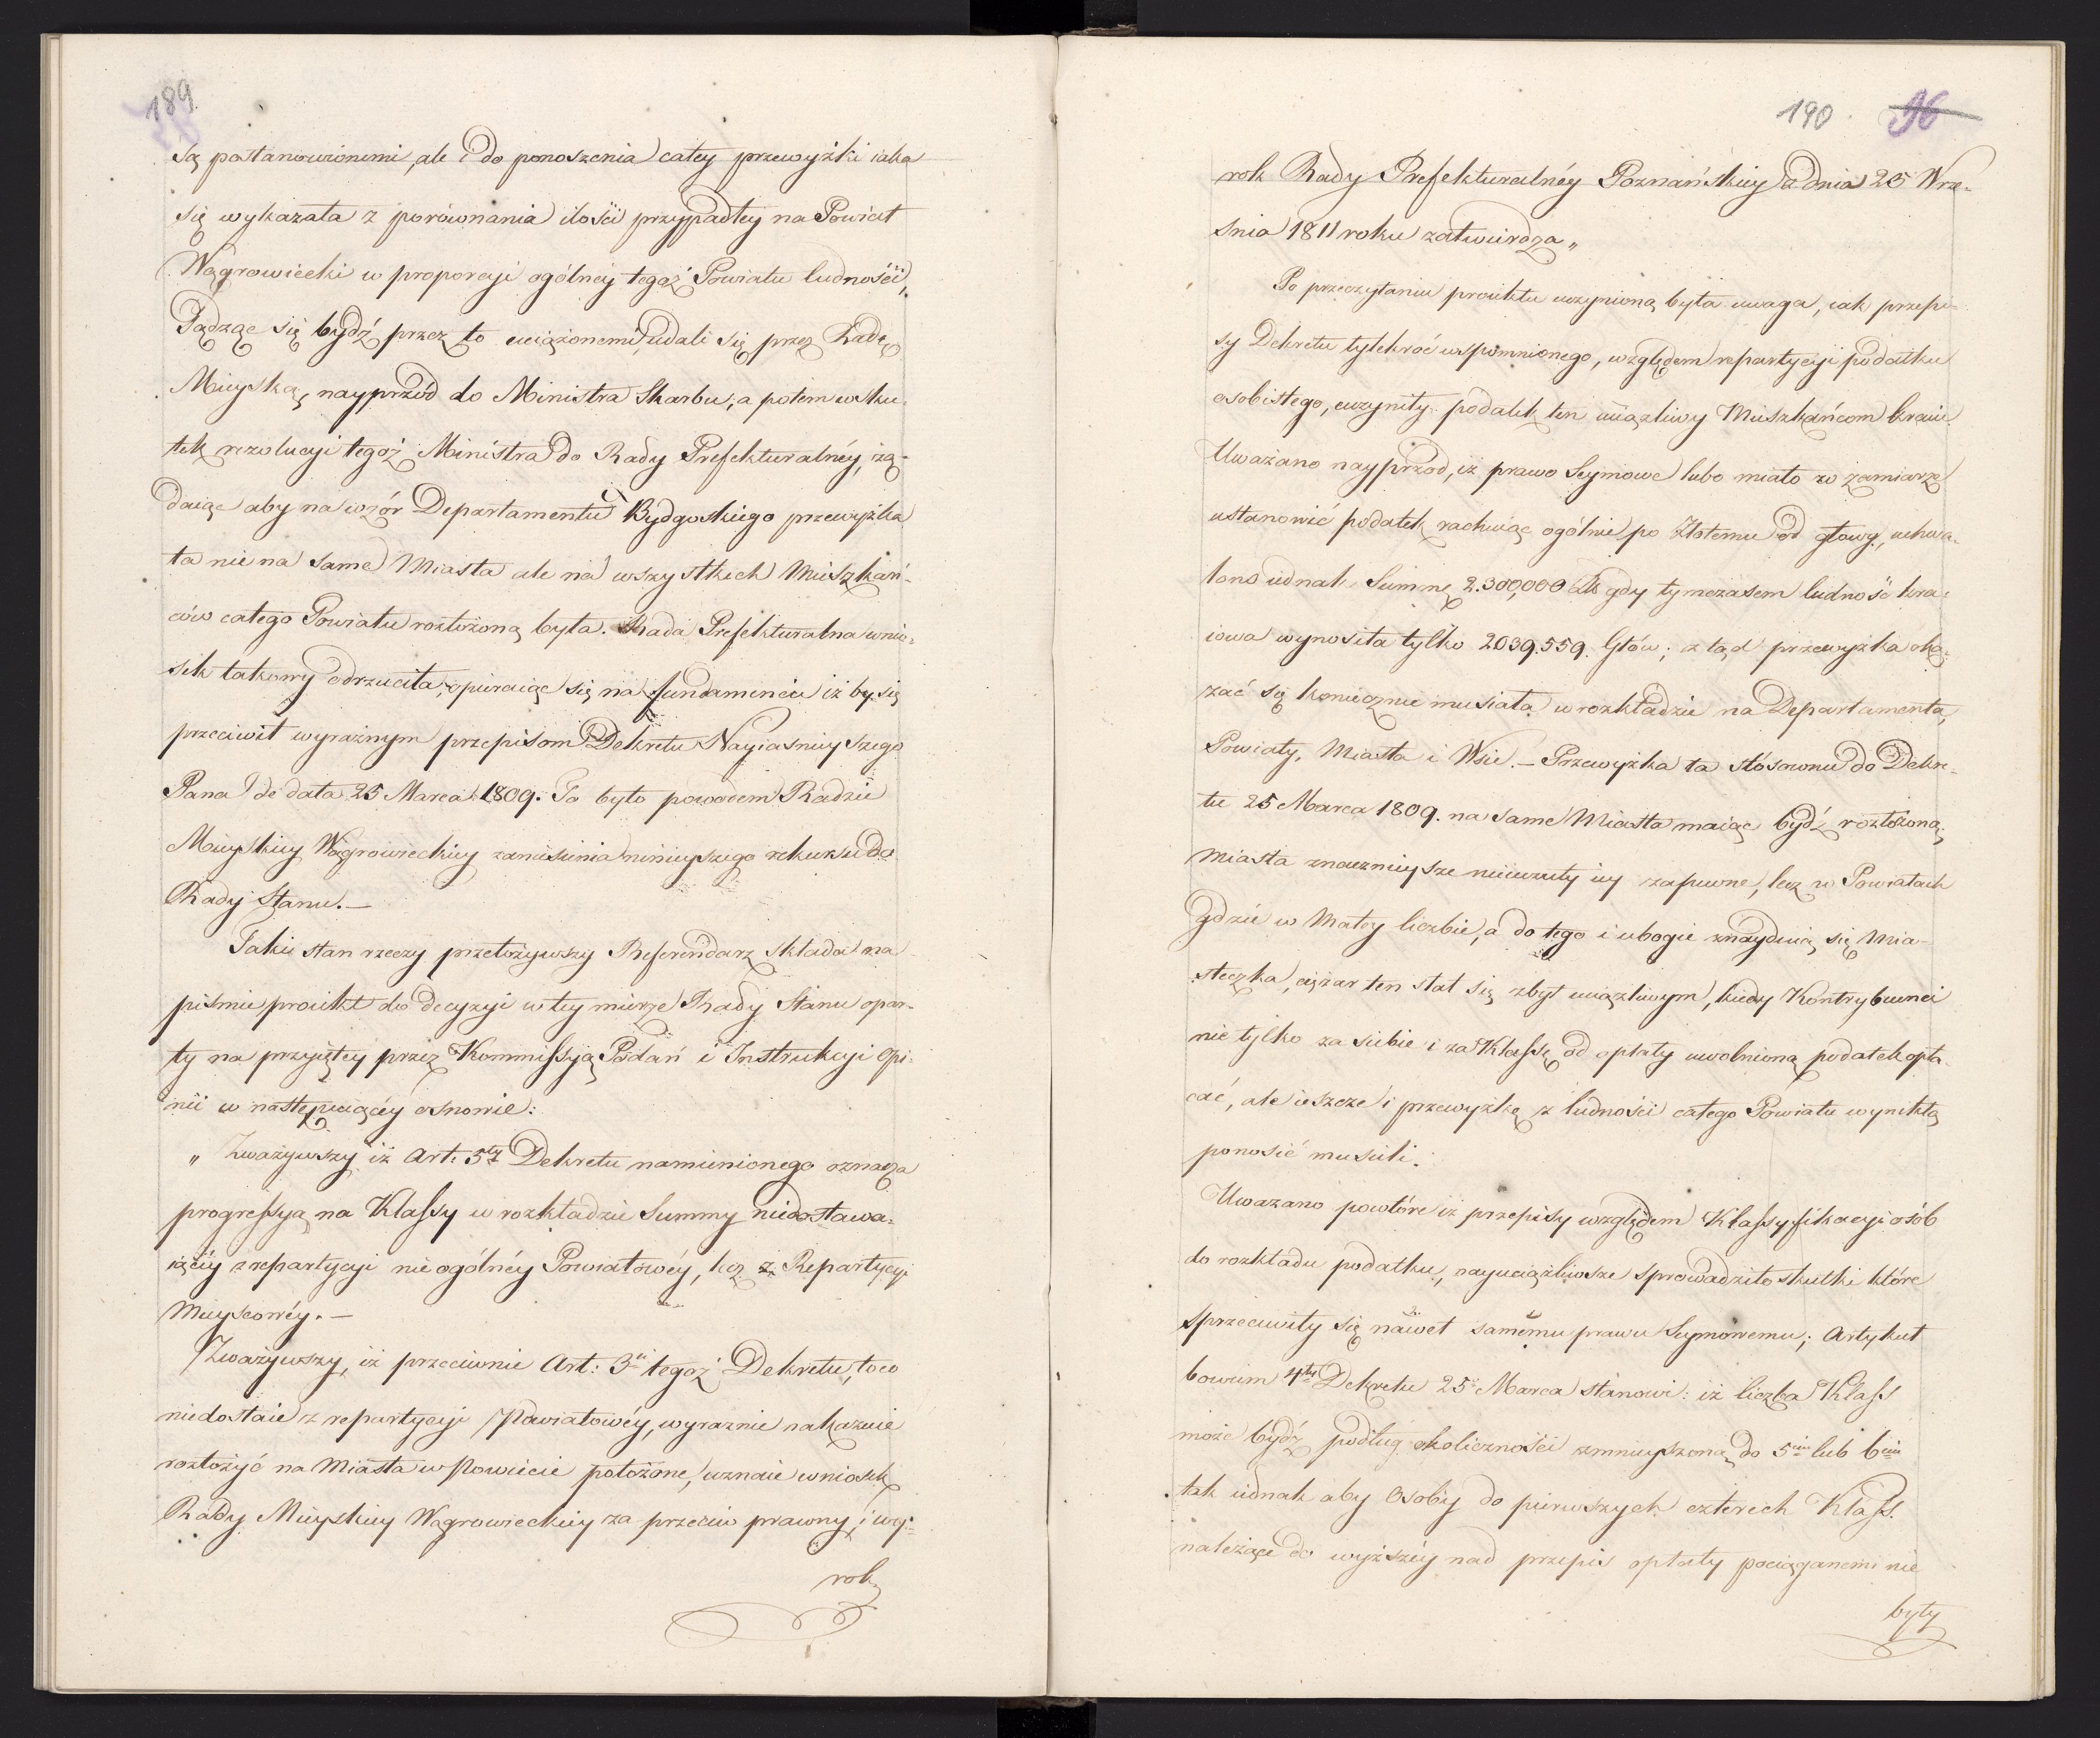 189.
są postanowionemi, ale i do ponoszenia całey przewyżki iaka
się wykazała z porównania ilości przypadłey na Powiat
Wągrowiecki w proporcyi ogólney tegoż Powiatu ludności,
Sądząc się bydź przez to uciążonemi, udali się przez Radę
Mieyską, nayprzód do Ministra Skarbu, a potem w sku-
tek rezolucyi tegoż Ministra do Rady Prefekturalnéy, żą-
daiąc aby na wzór Departamentu Bydgoskiego przewyżka
ta nie na same Miasta ale na wszystkich Mieszkań-
ców całego Powiatu rozłożoną była. Rada Prefekturalna wnio-
sek takowy odrzuciła, opieraiąc się na fundamencie iż by się
przeciwił wyraźnym przepisom Dekretu Nayiaśnieyszego
Pana de data 25 Marca 1809. To było powodem Radzie
Mieyskiey Wągrowieckiey zaniesienia ninieyszego rekursu do
Rady Stanu. —
Taki stan rzeczy przełożywszy Referendarz składa na
piśmie proiekt do decyzyi w tey mierze Rady Stanu opar-
ty na przyiętey przez Kommissyą Podań i Instrukcyi Opi-
nii w następuiącéy osnowie:
„ Zważywszy iż Art: 5ty Dekretu namienionego oznacza
progressyą na Klassy w rozkładzie Summy niedostawa-
iącéy z repartycyi nie ogólnéy Powiatowéy, lecz z Repartycyi
Mieyscowéy. —
Zważywszy, iż przeciwnie Art: 3ci tegoż Dekretu, to co
niedostaie z repartycyi Powiatowéy, wyraźnie nakazuie
rozłożyć na Miasta w Powiecie położone, uznaie wniosek
Rady Mieyskiey Wągrowieckiey za przeciw prawny, i wy-
rok
190. 96
rok Rady Prefekturalnéy Poznańskiey z dnia 25 Wrze-
śnia 1811 roku zatwierdza „
Po przeczytaniu proiektu uczynioną była uwaga, iak przepi-
sy Dekretu tylekroć wspomnionego, względem repartycyi podatku
osobistego, uczyniły podatek ten uciążliwy Mieszkańcom kraiu.
Uważano nayprzód, iż prawo Seymowe lubo miało w zamiarze
ustanowić podatek rachuiąc ogólnie po Złotemu od głowy, uchwa-
lono iednak Summę 2.300,000 Zł: gdy tymczasem ludność kra-
iowa wynosiła tylko 2039.559. Głów; z tąd przewyżka oka-
zać się koniecznie musiała w rozkładzie na Departamenta,
Powiaty, Miasta i Wsie. — Przewyżka ta stosownie do Dekre-
tu 25 Marca 1809. na same Miasta maiąc bydź rozłożoną,
Miasta znacznieysze nieuczuły iey zapewne, lecz w Powiatach
gdzie w małey liczbie, a do tego i ubogie znayduią się Mia-
steczka, ciężar ten stał się zbyt uciążliwym, kiedy Kontrybuenci
nie tylko za siebie i za Klassę od opłaty uwolnioną podatek opła-
cać, ale ieszcze i przewyżkę z ludności całego Powiatu wynikłą
ponosić musieli.
Uwazano powtóre iż przepisy względem Klassyfikacyi osób
do rozkładu podatku, nayuciążliwsze sprowadziło skutki które
sprzeciwiły się nawet samemu prawu Seymowemu; Artykuł
bowiem 4ty Dekretu 25 Marca stanowi: iż liczba Klass
może bydź podług okoliczności zmnieyszoną do 5ciu lub 6ciu
tak iednak aby Osoby do pierwszych czterech Klass.
należące do wyższéy nad przepis opłaty pociąganemi nie
były